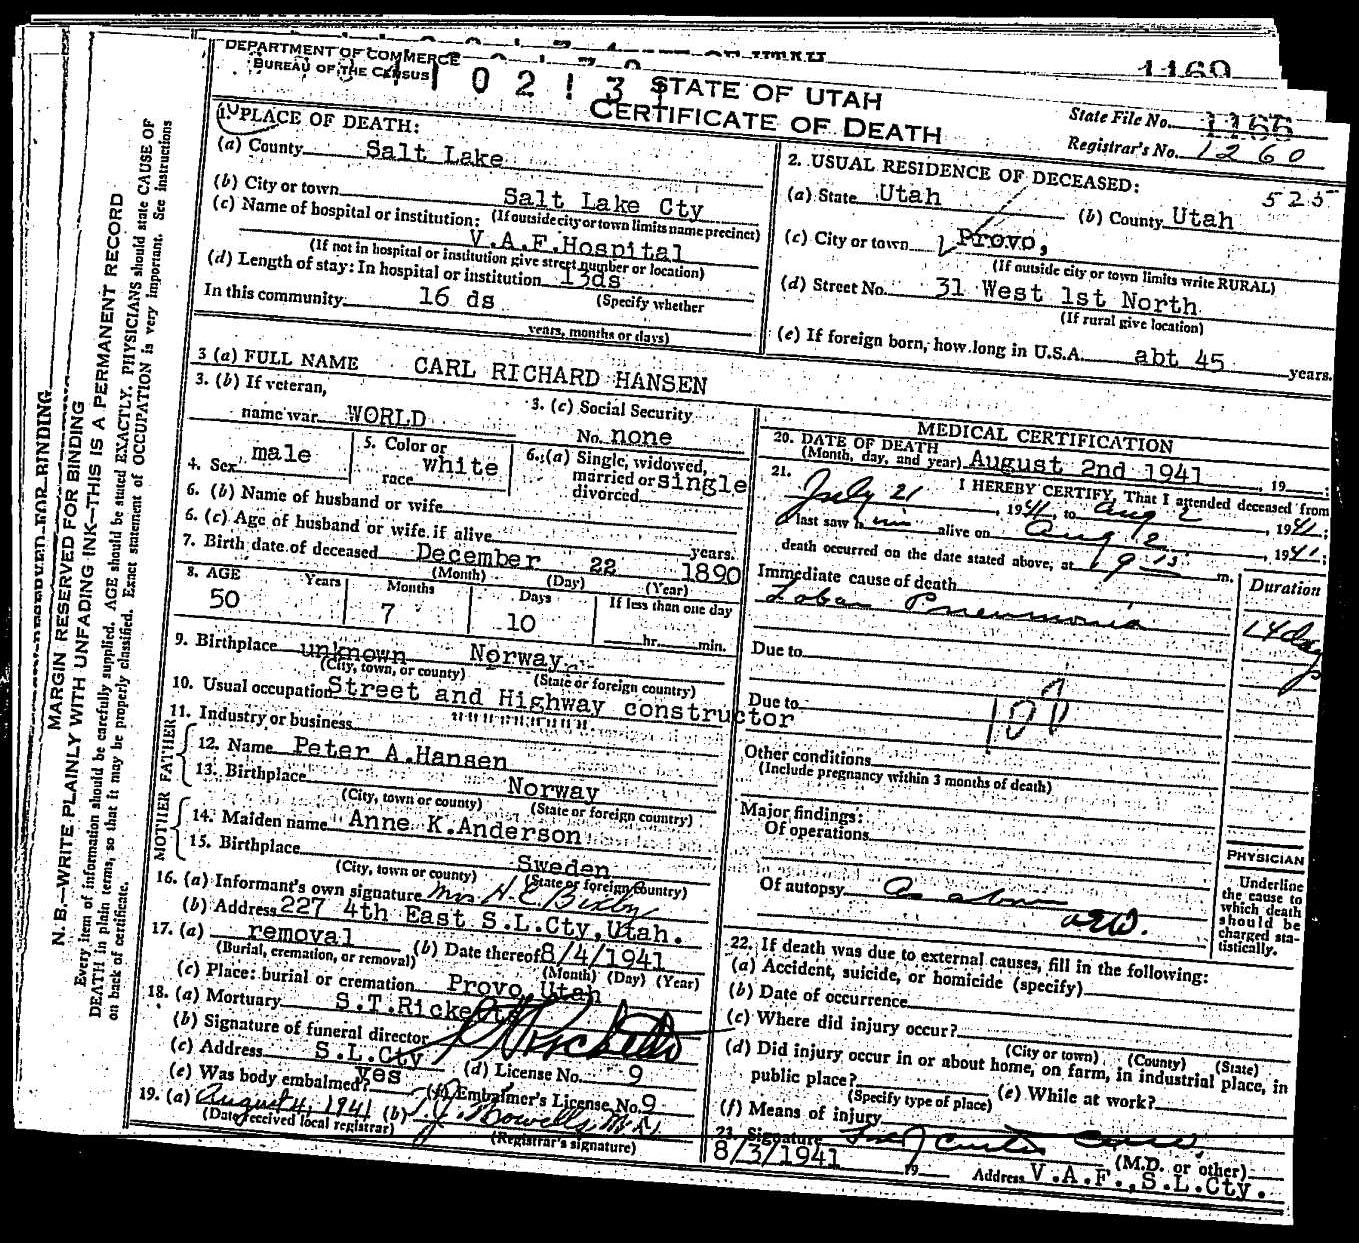 1169
DEPARTMENT OF COMMERCE
BUREAU OF THE CENSUS
STATE OF UTAH
CERTIFICATE OF DEATH
State File No. 1166
Registrar's No. 1260
1. PLACE OF DEATH:
(a) County Salt Lake
(b) City or town Salt Lake Cty
(If outside city or town limits name precinct)
(c) Name of hospital or institution:
V.A.F.Hospital
(If not in hospital or institution give street number or location)
(d) Length of stay: In hospital or institution 13ds
In this community 16 ds (Specify whether
years, months or days)
2. USUAL RESIDENCE OF DECEASED:
525
(a) State Utah (b) County Utah
(c) City or town Provo,
(If outside city or town limits write RURAL)
(d) Street No. 31 West 1st North
(If rural give location)
(e) If foreign born, how long in U.S.A. abt 45 years.
3 (a) FULL NAME CARL RICHARD HANSEN
3. (b) If veteran,
name war WORLD
3. (c) Social Security
No. none
4. Sex male
5. Color or
race white
6. (a) Single, widowed,
married or
divorced single
6. (b) Name of husband or wife
6. (c) Age of husband or wife if alive years.
7. Birth date of deceased December 22 1890
(Month) (Day) (Year)
8. AGE Years Months Days If less than one day
50 7 10 hr. min.
9. Birthplace unknown Norway
(City, town, or county) (State or foreign country)
10. Usual occupation Street and Highway constructor
11. Industry or business """"""""""""
FATHER
12. Name Peter A.Hansen
13. Birthplace Norway
(City, town or county) (State or foreign country)
MOTHER
14. Maiden name Anne K.Anderson
15. Birthplace Sweden
(City, town or county) (State or foreign country)
16. (a) Informant's own signature Mrs H.E. Bixby
(b) Address 227 4th East S.L.Cty,Utah.
17. (a) removal (b) Date thereof 8/4/1941
(Burial, cremation, or removal) (Month) (Day) (Year)
(c) Place: burial or cremation Provo Utah
18. (a) Mortuary S.T.Ricketts
(b) Signature of funeral director
(c) Address S.L.Cty (d) License No. 9
(e) Was body embalmed? yes (f) Embalmer's License No. 9
19. (a) August 4, 1941 (b)
(Date received local registrar) (Registrar's signature)
MEDICAL CERTIFICATION
20. DATE OF DEATH
(Month, day, and year) August 2nd 1941, 19 :
21. I HEREBY CERTIFY, That I attended deceased from
July 21, 1941, to Aug 2 1941;
I last saw him alive on Aug 2, 1941;
death occurred on the date stated above, at 9 15 m.
Immediate cause of death Duration
Lobar Pneumonia 14 days
Due to
Due to
108
Other conditions
(Include pregnancy within 3 months of death)
Major findings:
Of operations
Of autopsy As above
PHYSICIAN
Underline
the cause to
which death
should be
charged sta-
tistically.
22. If death was due to external causes, fill in the following:
(a) Accident, suicide, or homicide (specify)
(b) Date of occurrence
(c) Where did injury occur?
(City or town) (County) (State)
(d) Did injury occur in or about home, on farm, in industrial place, in
public place? (e) While at work?
(Specify type of place)
(f) Means of injury
23. Signature
(M.D. or other)
8/3/1941 19 Address V.A.F.,S.L.Cty.
MARGIN RESERVED FOR BINDING
N. B.—WRITE PLAINLY WITH UNFADING INK—THIS IS A PERMANENT RECORD
Every item of information should be carefully supplied. AGE should be stated EXACTLY. PHYSICIANS should state CAUSE OF
DEATH in plain terms, so that it may be properly classified. Exact statement of OCCUPATION is very important. See instructions
on back of certificate.